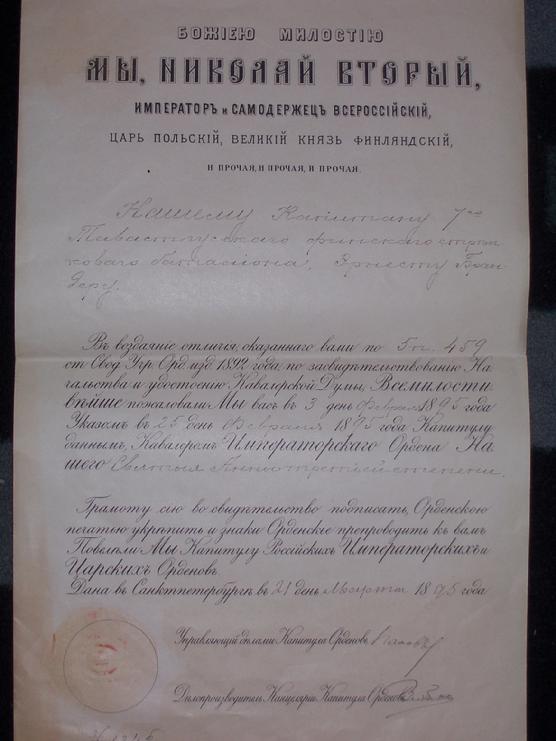 БОЖІЕЮ МИЛОСТІЮ
МЫ, НИКОЛАЙ ВТОРЫЙ,
ИМПЕРАТОРЪ и САМОДЕРЖЕЦЪ ВСЕРОССІЙСКІЙ,
ЦАРЬ ПОЛЬСКІЙ, ВЕЛИКІЙ КНЯЗЬ ФИНЛЯНДСКІЙ,
И ПРОЧАЯ, И ПРОЧАЯ, И ПРОЧАЯ.
Нашему Капитану 7го
Тавастгусскаго финскаго стрѣл
коваго баталіона, Эрнесту Бран
деру.
Въ воздаяніе отличія, оказаннаго вами по 5 п. 459
ст Свод Учр Орд изд 1892 года, по засвидѣтельствованію На
чальства и удостоенію Кавалерской Думы, Всемилости
вѣйше пожаловали Мы васъ въ 3 день Февраля 1895 года
Указомъ въ 25 день Февраля 1895 года Капитулу
даннымъ, Кавалеромъ Императорскаго Ордена На
шего Святыя Анны третьей степени.
Грамоту сію во свидѣтельство подписать, Орденскою
печатью укрѣпить и знаки Орденскіе препроводить къ вамъ
Повелѣли Мы Капитулу Россійскихъ Императорскихъ и
Царскихъ Орденовъ.
Дана въ Санктпетербургѣ въ 21 день Марта 1895 года
Управляющій дѣлами Капитула Орденовъ
Дѣлопроизводитель Канцеляріи Капитула Орденовъ